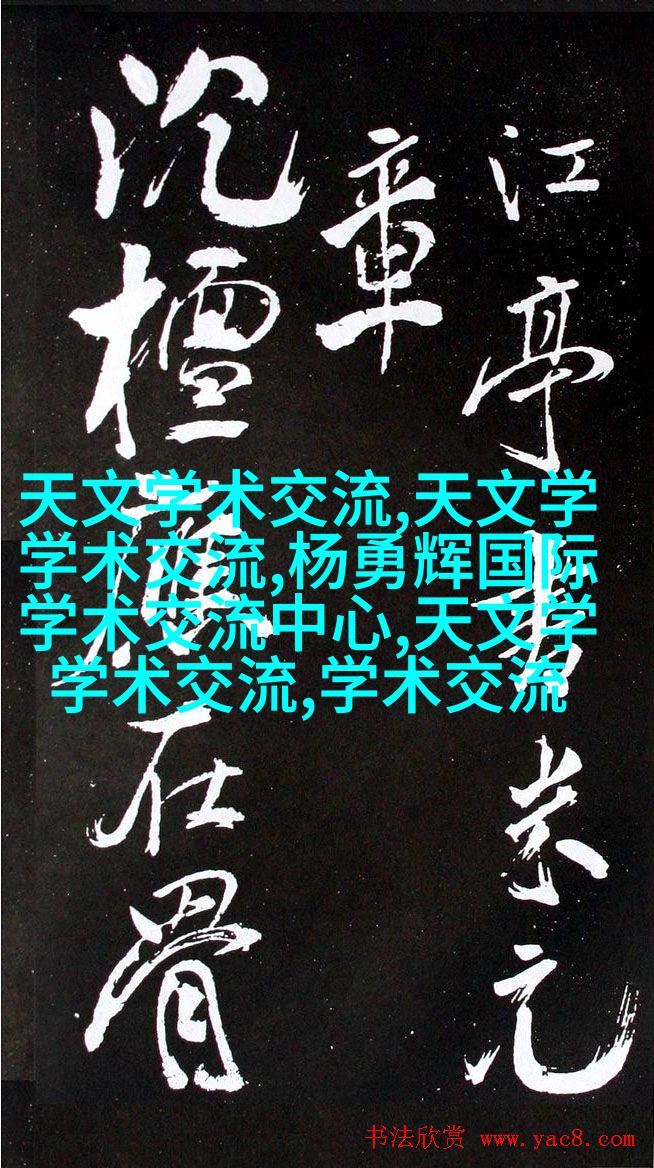 江亭書米元
章
沉檀
在骨
天文学术交流,天文学
学术交流,杨勇辉国际
学术交流中心,天文学
学术交流,学术交流
书法欣赏 www.yac8.com